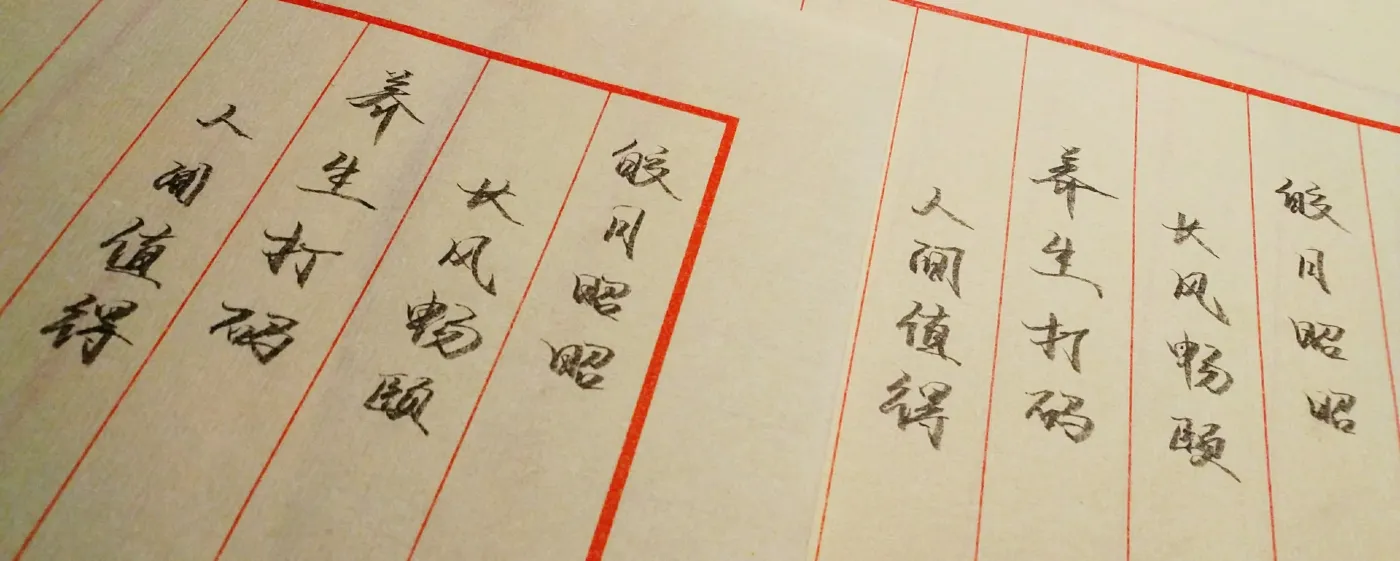 皎月昭昭
长风畅颐
养生打码
人间值得
皎月昭昭
长风畅颐
养生打码
人间值得